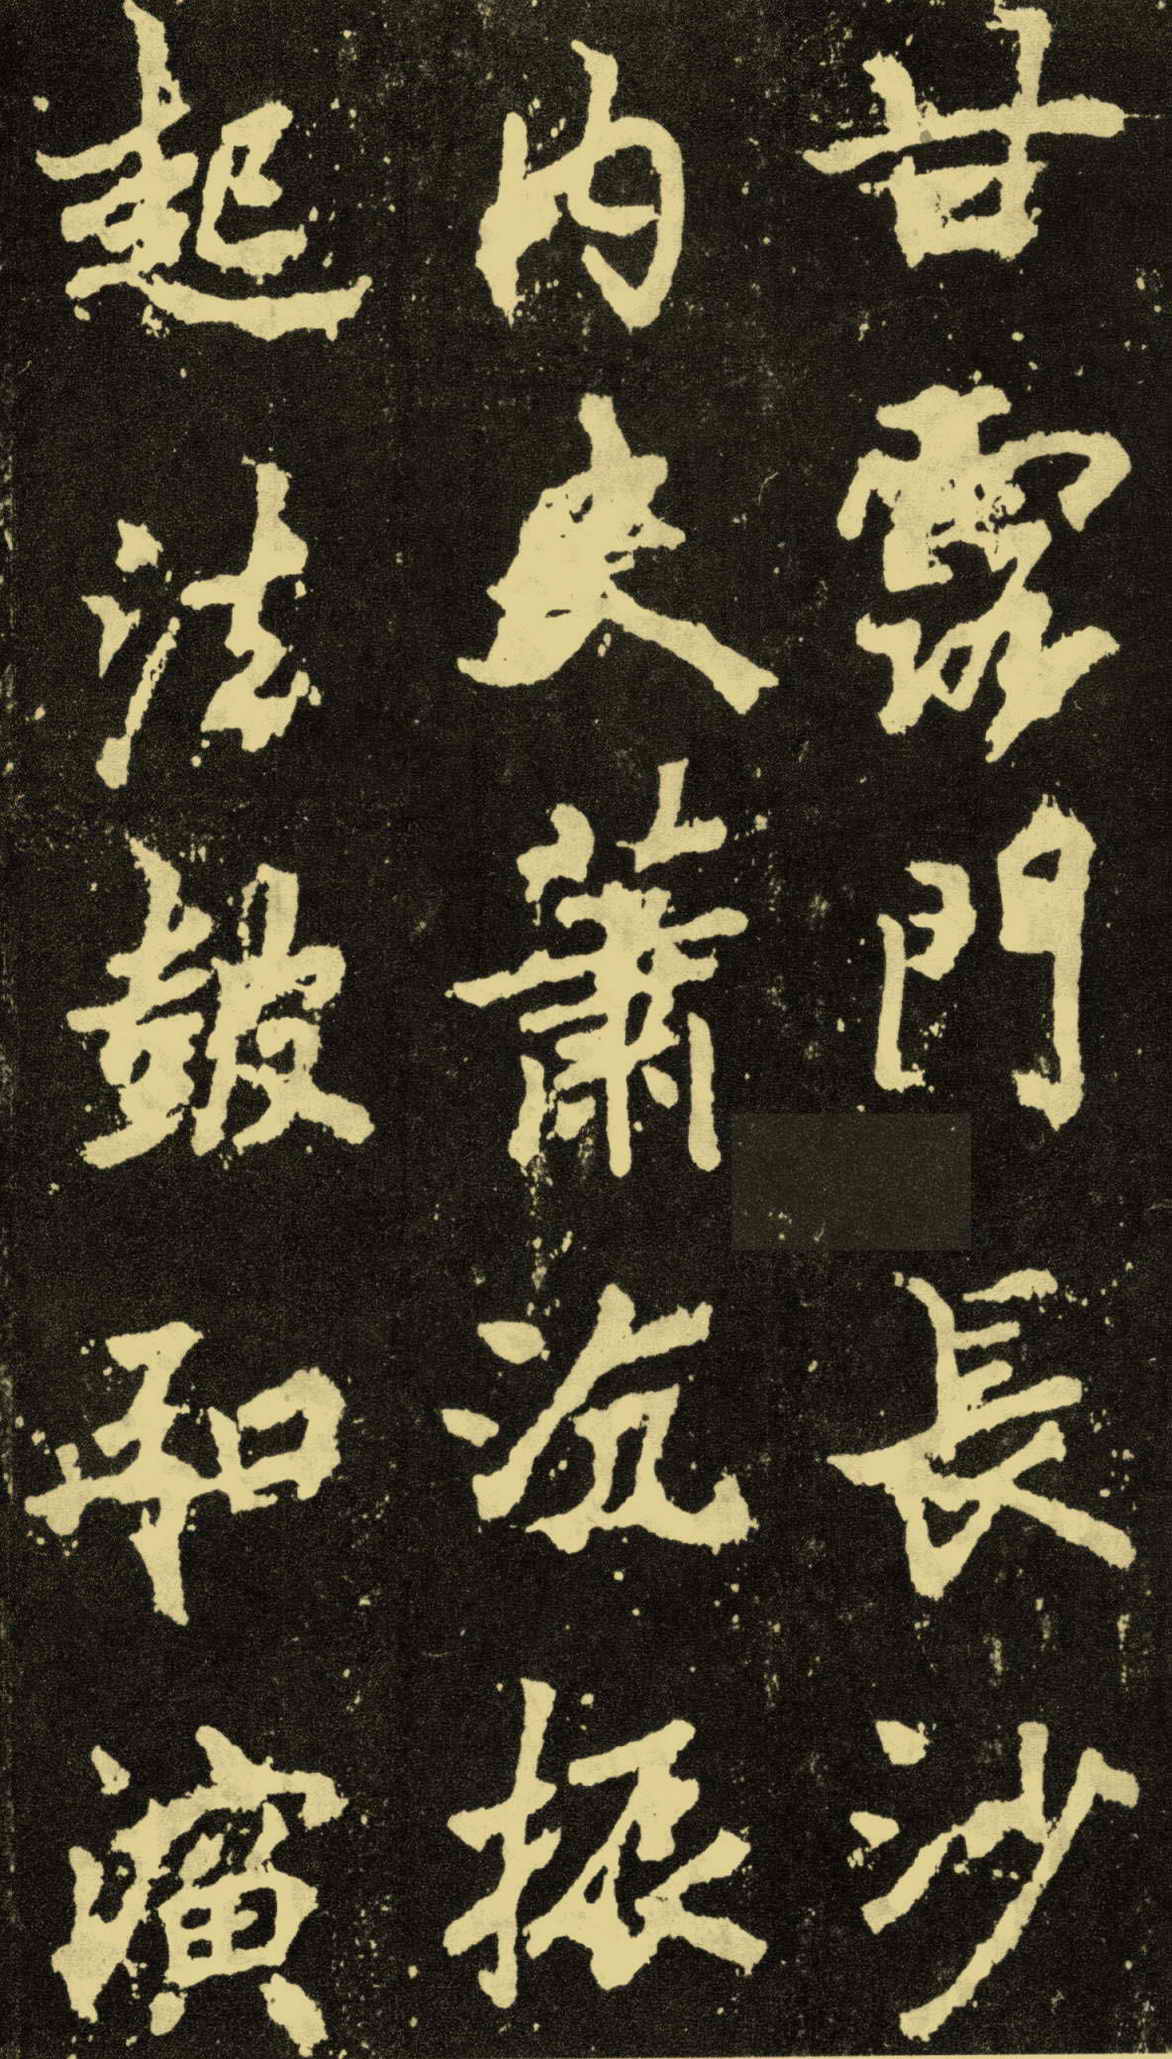 甘露門長沙
内史蕭沇振
起法鼓和演